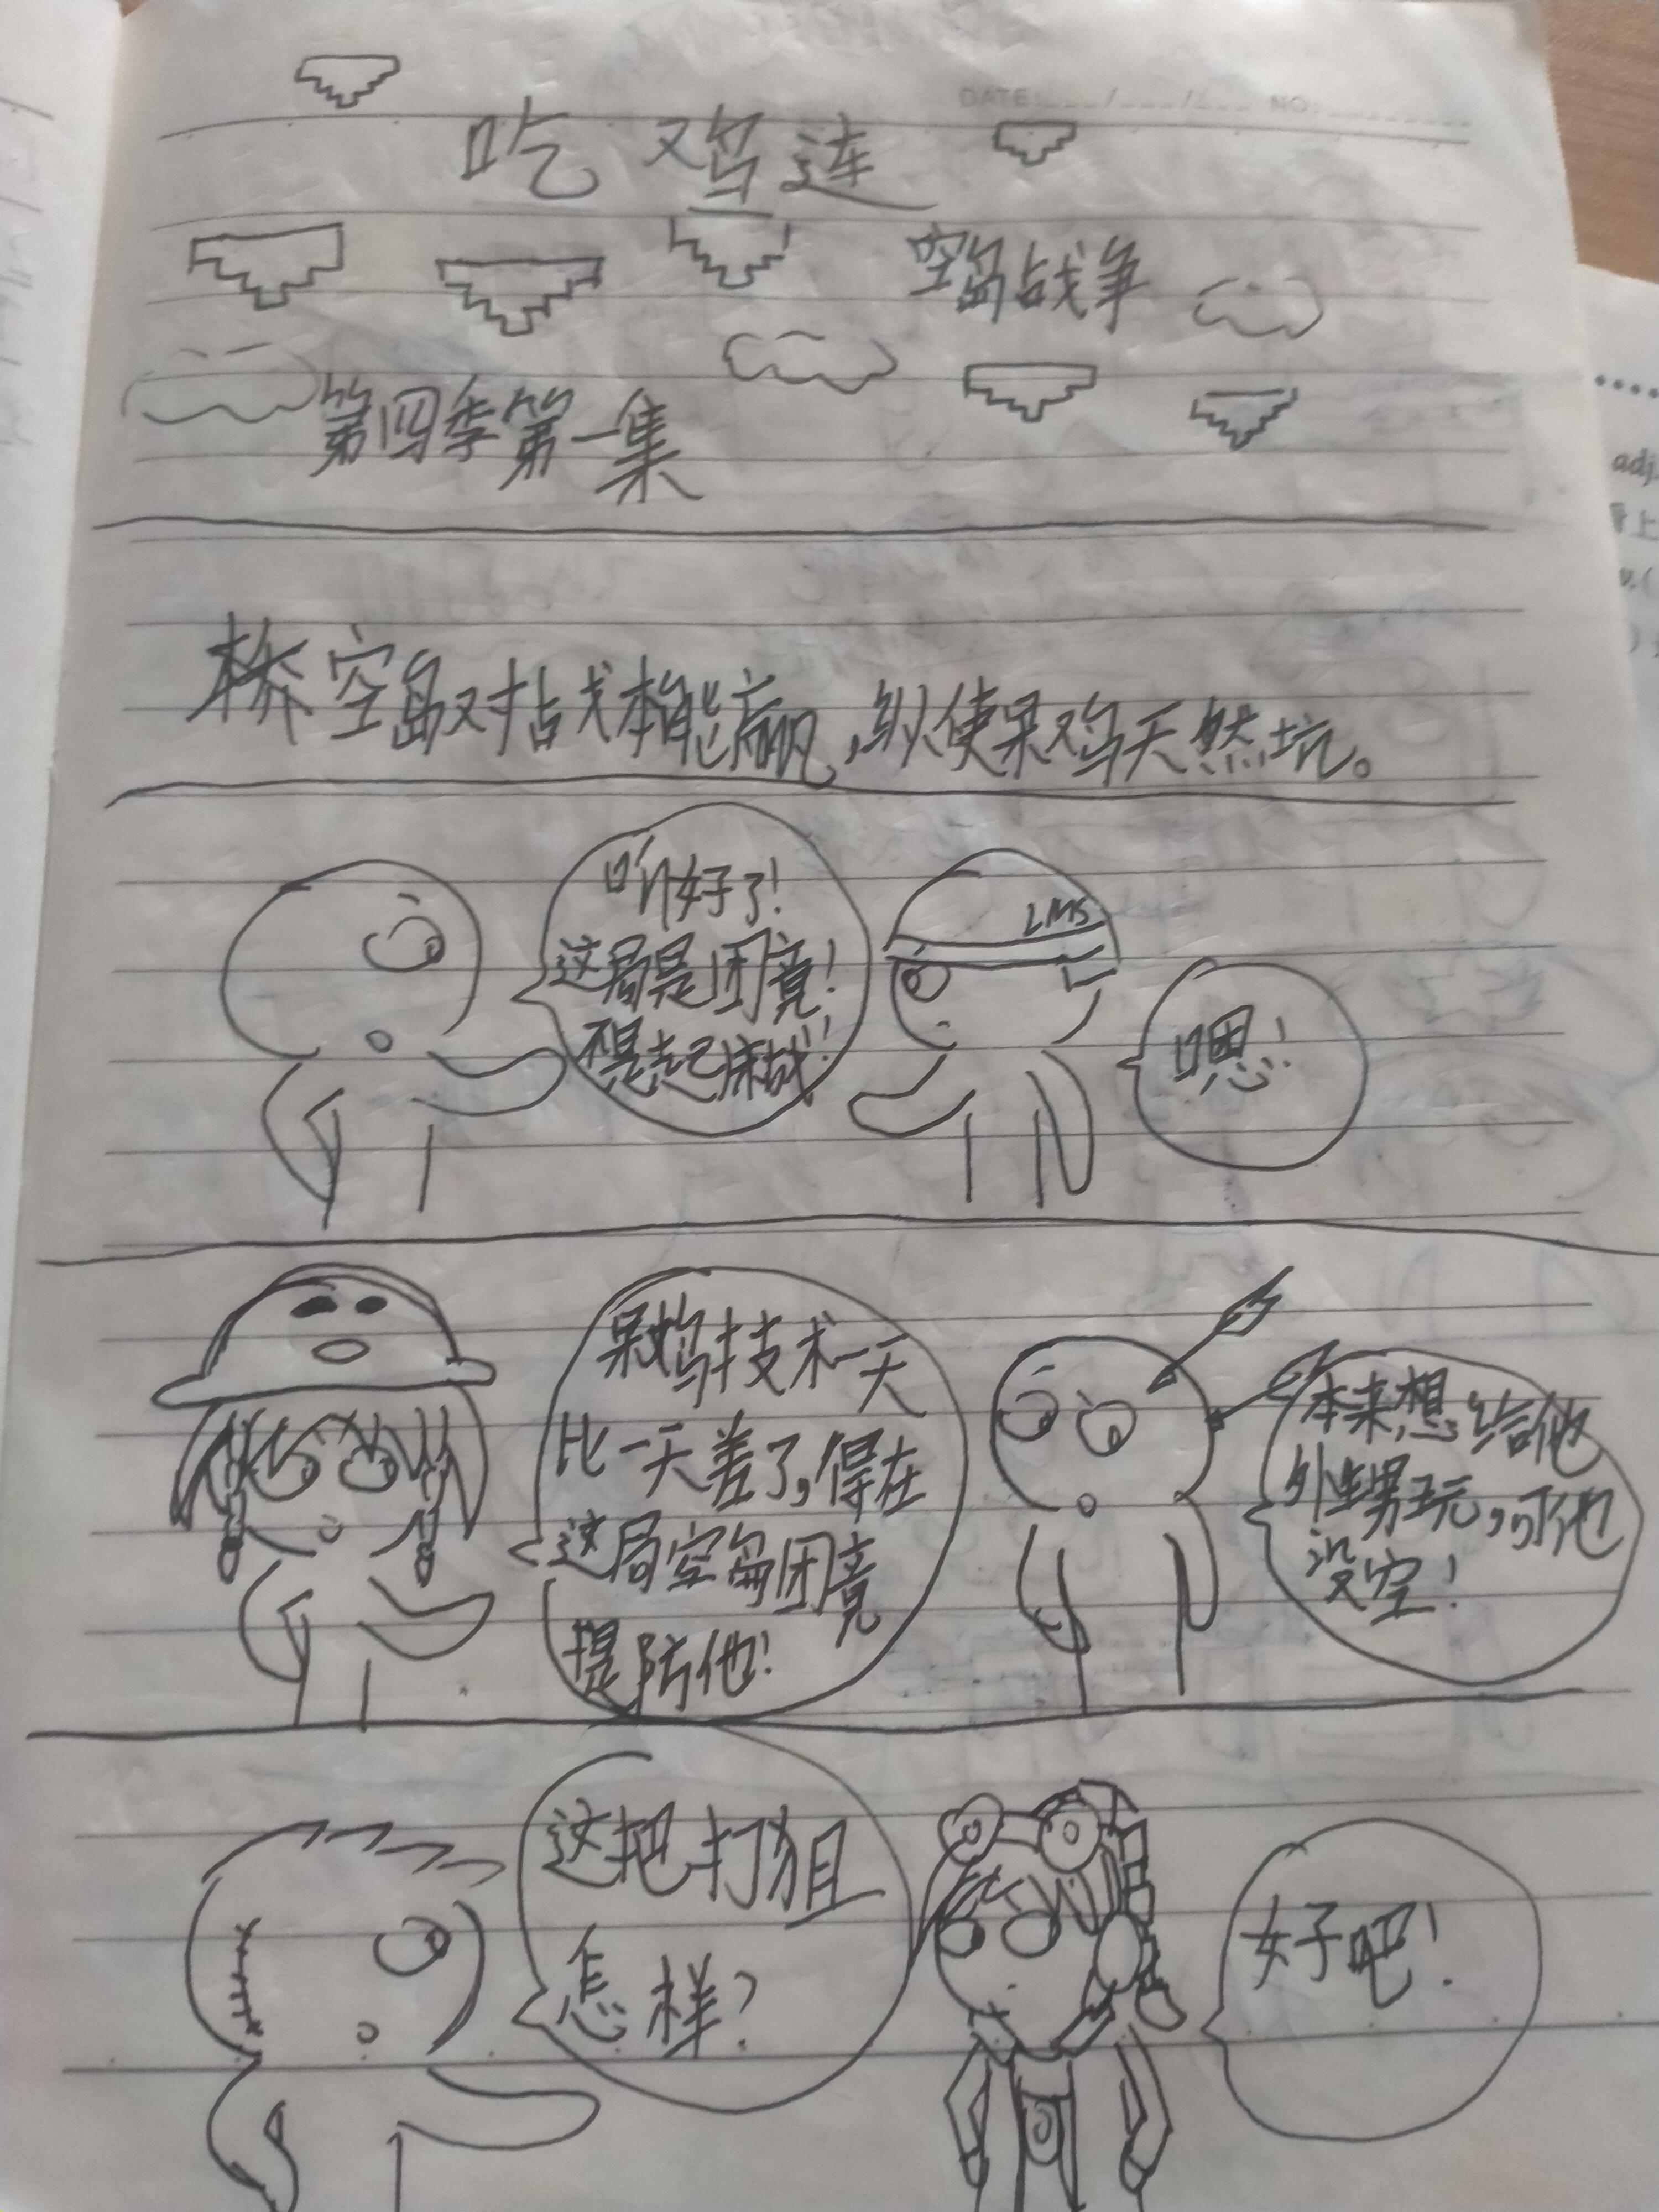 DATE: / / NO:
吃鸡连
空岛战争
第四季第一集
桥空岛对拈战本能赢,纵使呆鸡天然坑。
听好了!
这局是困境!
想起床战!
LMS
嗯!
呆鸡技术一天
比一天差了,得在
这局空岛困境
提防他!
本来想给他
外甥玩,可他
没空!
这把打狙
怎样?
好吧!
adj.